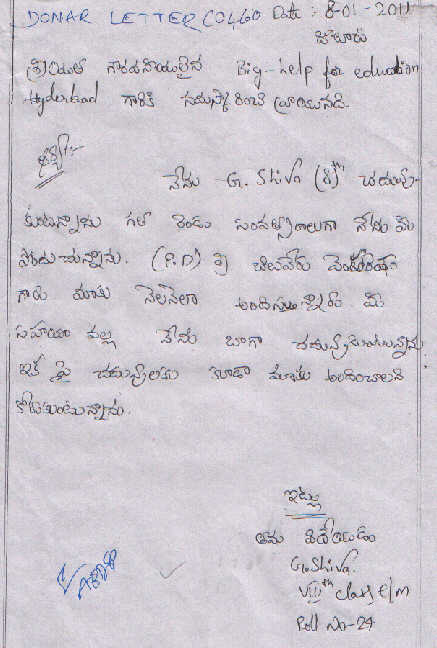 DONAR LETTER CO460 Date : 8-01-2011
శ్రీయుత గౌరవనీయులైన Big-help for education
Hyderbad గారికి నమస్కరించి వ్రాయునది.
నేను G. Shiva (8th) చదువు
కుంటున్నాను గత రెండు సంవత్సరాలుగా నేను మీ
(P.D) శ్రీ
గారు మాకు నెలనెలా అందిస్తున్నారు మీ
సహాయం వల్ల నేను బాగా చదువుకుంటున్నాను
ఇక పై చదువులకు కూడా మాకు అందించాలని
కోరుకుంటున్నాను.
ఇట్లు
తమ విదేయుడు
G. Shiva.
VIIIth class E/m
Roll No-24